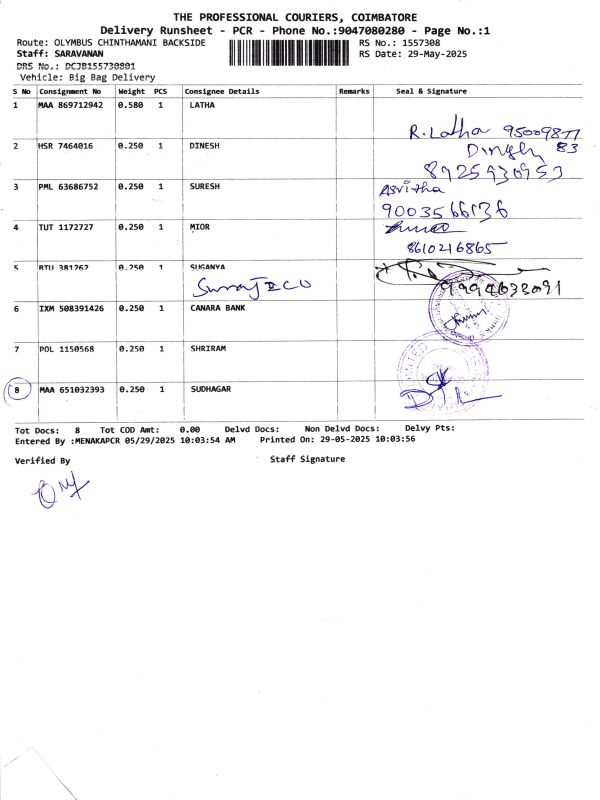 THE PROFESSIONAL COURIERS, COIMBATORE
Delivery Runsheet - PCR - Phone No.:9047080280 - Page No.:1
Route: OLYMBUS CHINTHAMANI BACKSIDE RS No.: 1557308
Staff: SARAVANAN RS Date: 29-May-2025
DRS No.: DCJB155730801
Vehicle: Big Bag Delivery
S No Consignment No Weight PCS Consignee Details Remarks Seal & Signature
1 MAA 869712942 0.580 1 LATHA
R. Latha 95009877
83
2 HSR 7464016 0.250 1 DINESH
8925930953
3 PML 63686752 0.250 1 SURESH Asritha
9003566136
4 TUT 1172727 0.250 1 MIOR
8610216865
5 BTU 381262 0.250 1 SUGANYA
9994633091
6 IXM 508391426 0.250 1 CANARA BANK
7 POL 1150568 0.250 1 SHRIRAM
8 MAA 651032393 0.250 1 SUDHAGAR
Tot Docs: 8 Tot COD Amt: 0.00 Delvd Docs: Non Delvd Docs: Delvy Pts:
Entered By :MENAKAPCR 05/29/2025 10:03:54 AM Printed On: 29-05-2025 10:03:56
Verified By Staff Signature